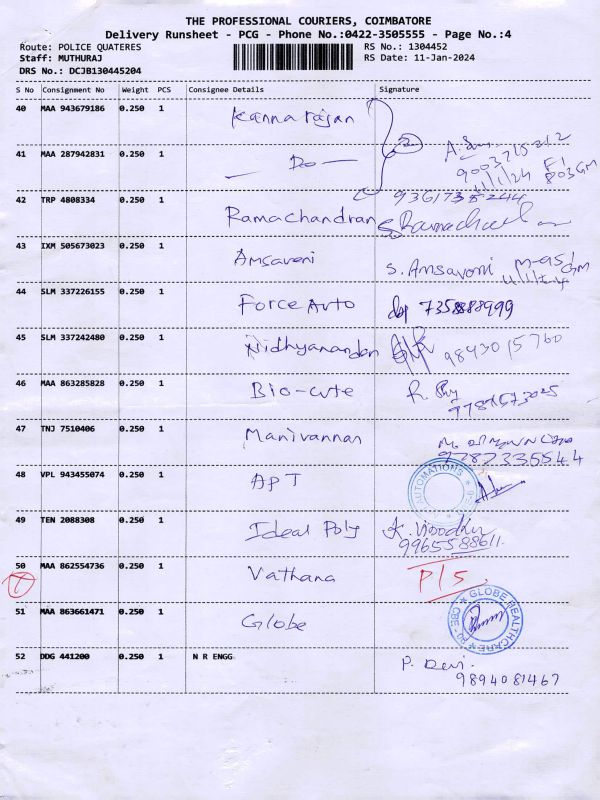 THE PROFESSIONAL COURIERS, COIMBATORE
Delivery Runsheet - PCG - Phone No.:0422-3505555 - Page No.:4
Route: POLICE QUATERES
RS No.: 1304452
Staff: MUTHURAJ
RS Date: 11-Jan-2024
DRS No.: DCJB130445204
S No Consignment No Weight PCS Consignee Details Signature
40 MAA 943679186 0.250 1 Kannarajan
2
41 MAA 287942831 0.250 1 — Do —
9003715212
11/1/24
42 TRP 4808334 0.250 1 Ramachandran
S Ramachan
43 IXM 505673023 0.250 1 Amsavoni S. Amsavoni
44 SLM 337226155 0.250 1 Force Auto 7358888999
45 SLM 337242480 0.250 1 Nidhyanandan 9843015760
46 MAA 863285828 0.250 1 Bio-cute
47 TNJ 7510406 0.250 1 Manivannan
9787335544
48 VPL 943455074 0.250 1 APT AUTOMATIONS
49 TEN 2088308 0.250 1 Ideal Poly
9965588611
50 MAA 862554736 0.250 1 Vathana P/S
51 MAA 863661471 0.250 1 Globe GLOBE HEALTHCARE CBE
52 DDG 441200 0.250 1 N R ENGG P. Devi
9894081467